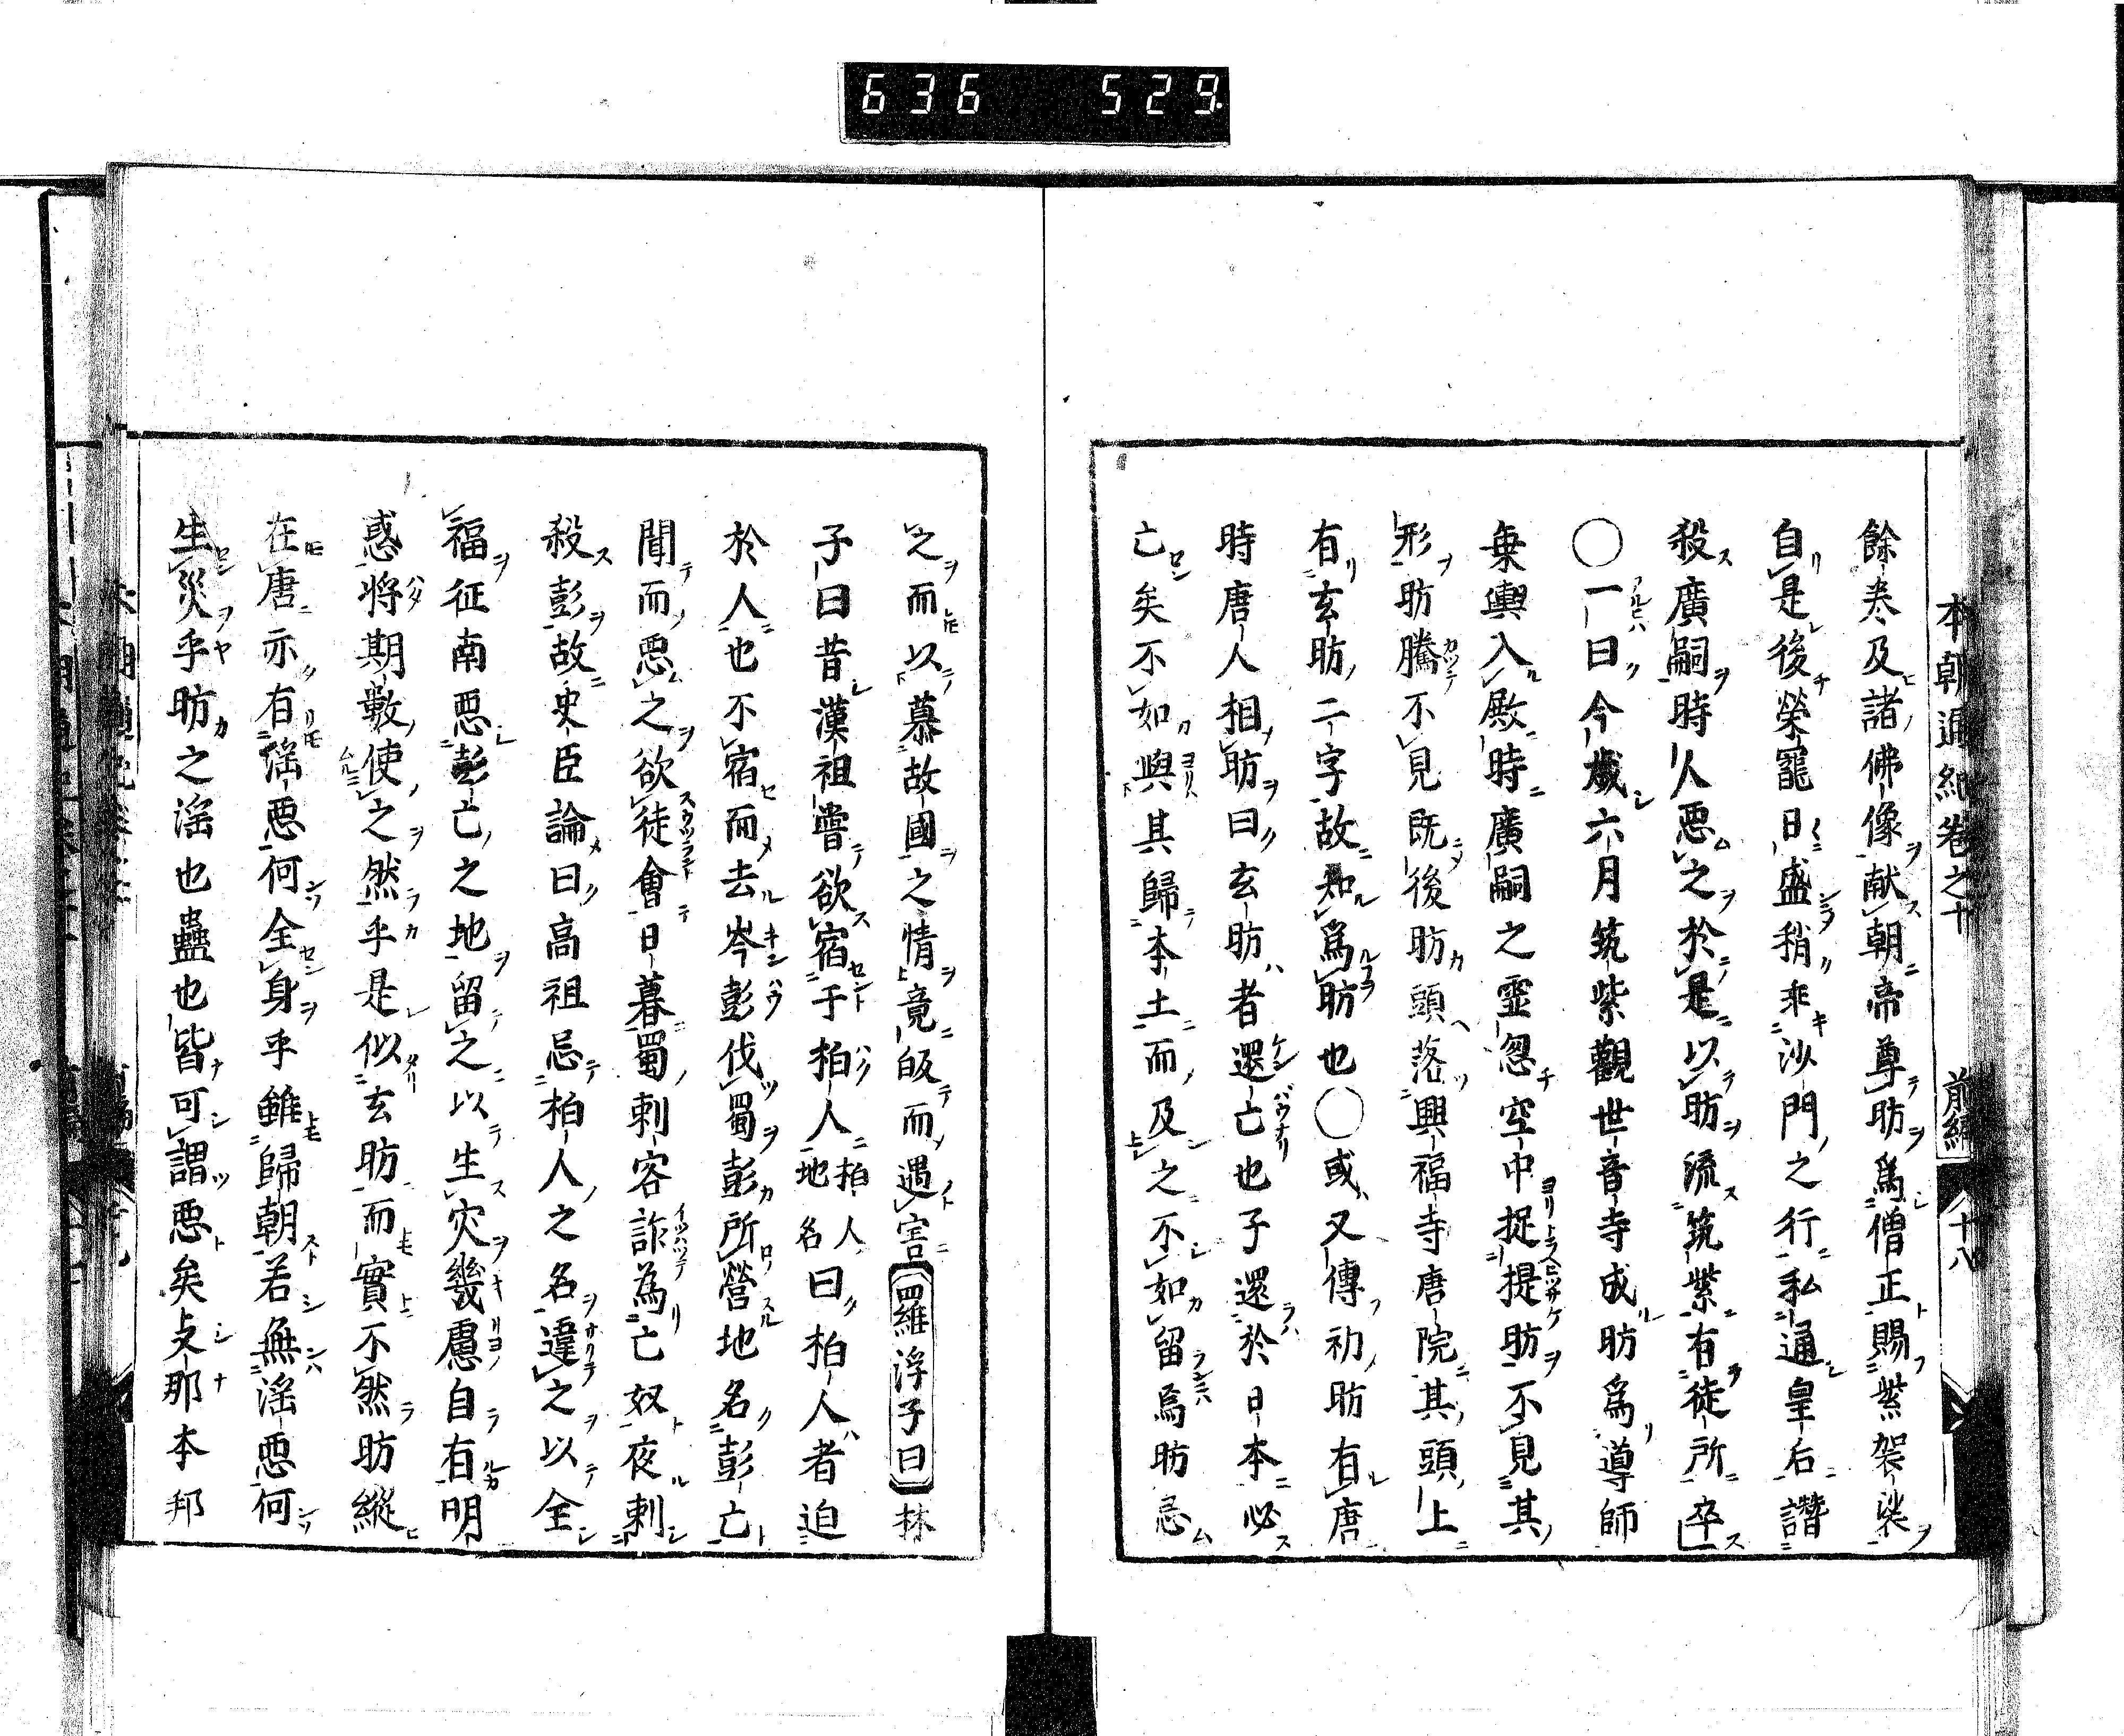 636 529
本朝通紀卷之十 前編 十八
餘卷及諸佛像献朝帝尊昉爲僧正賜紫袈裟
自是後榮寵日盛稍乖沙門之行私通皇后讒
殺廣嗣時人悪之於是以昉流筑紫有徒所卒
○一曰今歳六月筑紫觀世音寺成昉爲導師
乗輿入殿時廣嗣之靈忽空中捉提昉不見其
形昉騰不見既後昉頭落興福寺唐院其頭上
有玄昉二字故知爲昉也○或又傳初昉有唐
時唐人相昉曰玄昉者還亡也子還於日本必
亡矣不如與其歸本土而及之不如留焉昉忌
之而以慕故國之情竟皈而遇害羅浮子曰林
子曰昔漢祖嘗欲宿于柏人柏人地名曰柏人者迫
於人也不宿而去岑彭伐蜀彭所營地名彭亡
聞而悪之欲徒會日暮蜀刺客詐為亡奴夜刺
殺彭故史臣論曰高祖忌柏人之名違之以全
福征南悪彭亡之地留之以生灾幾慮自有明
惑將期數使之然乎是似玄昉而實不然昉縱
在唐示有滛悪何全身乎雖歸朝若無滛悪何
生災乎昉之滛也蠱也皆可謂悪矣支那本邦